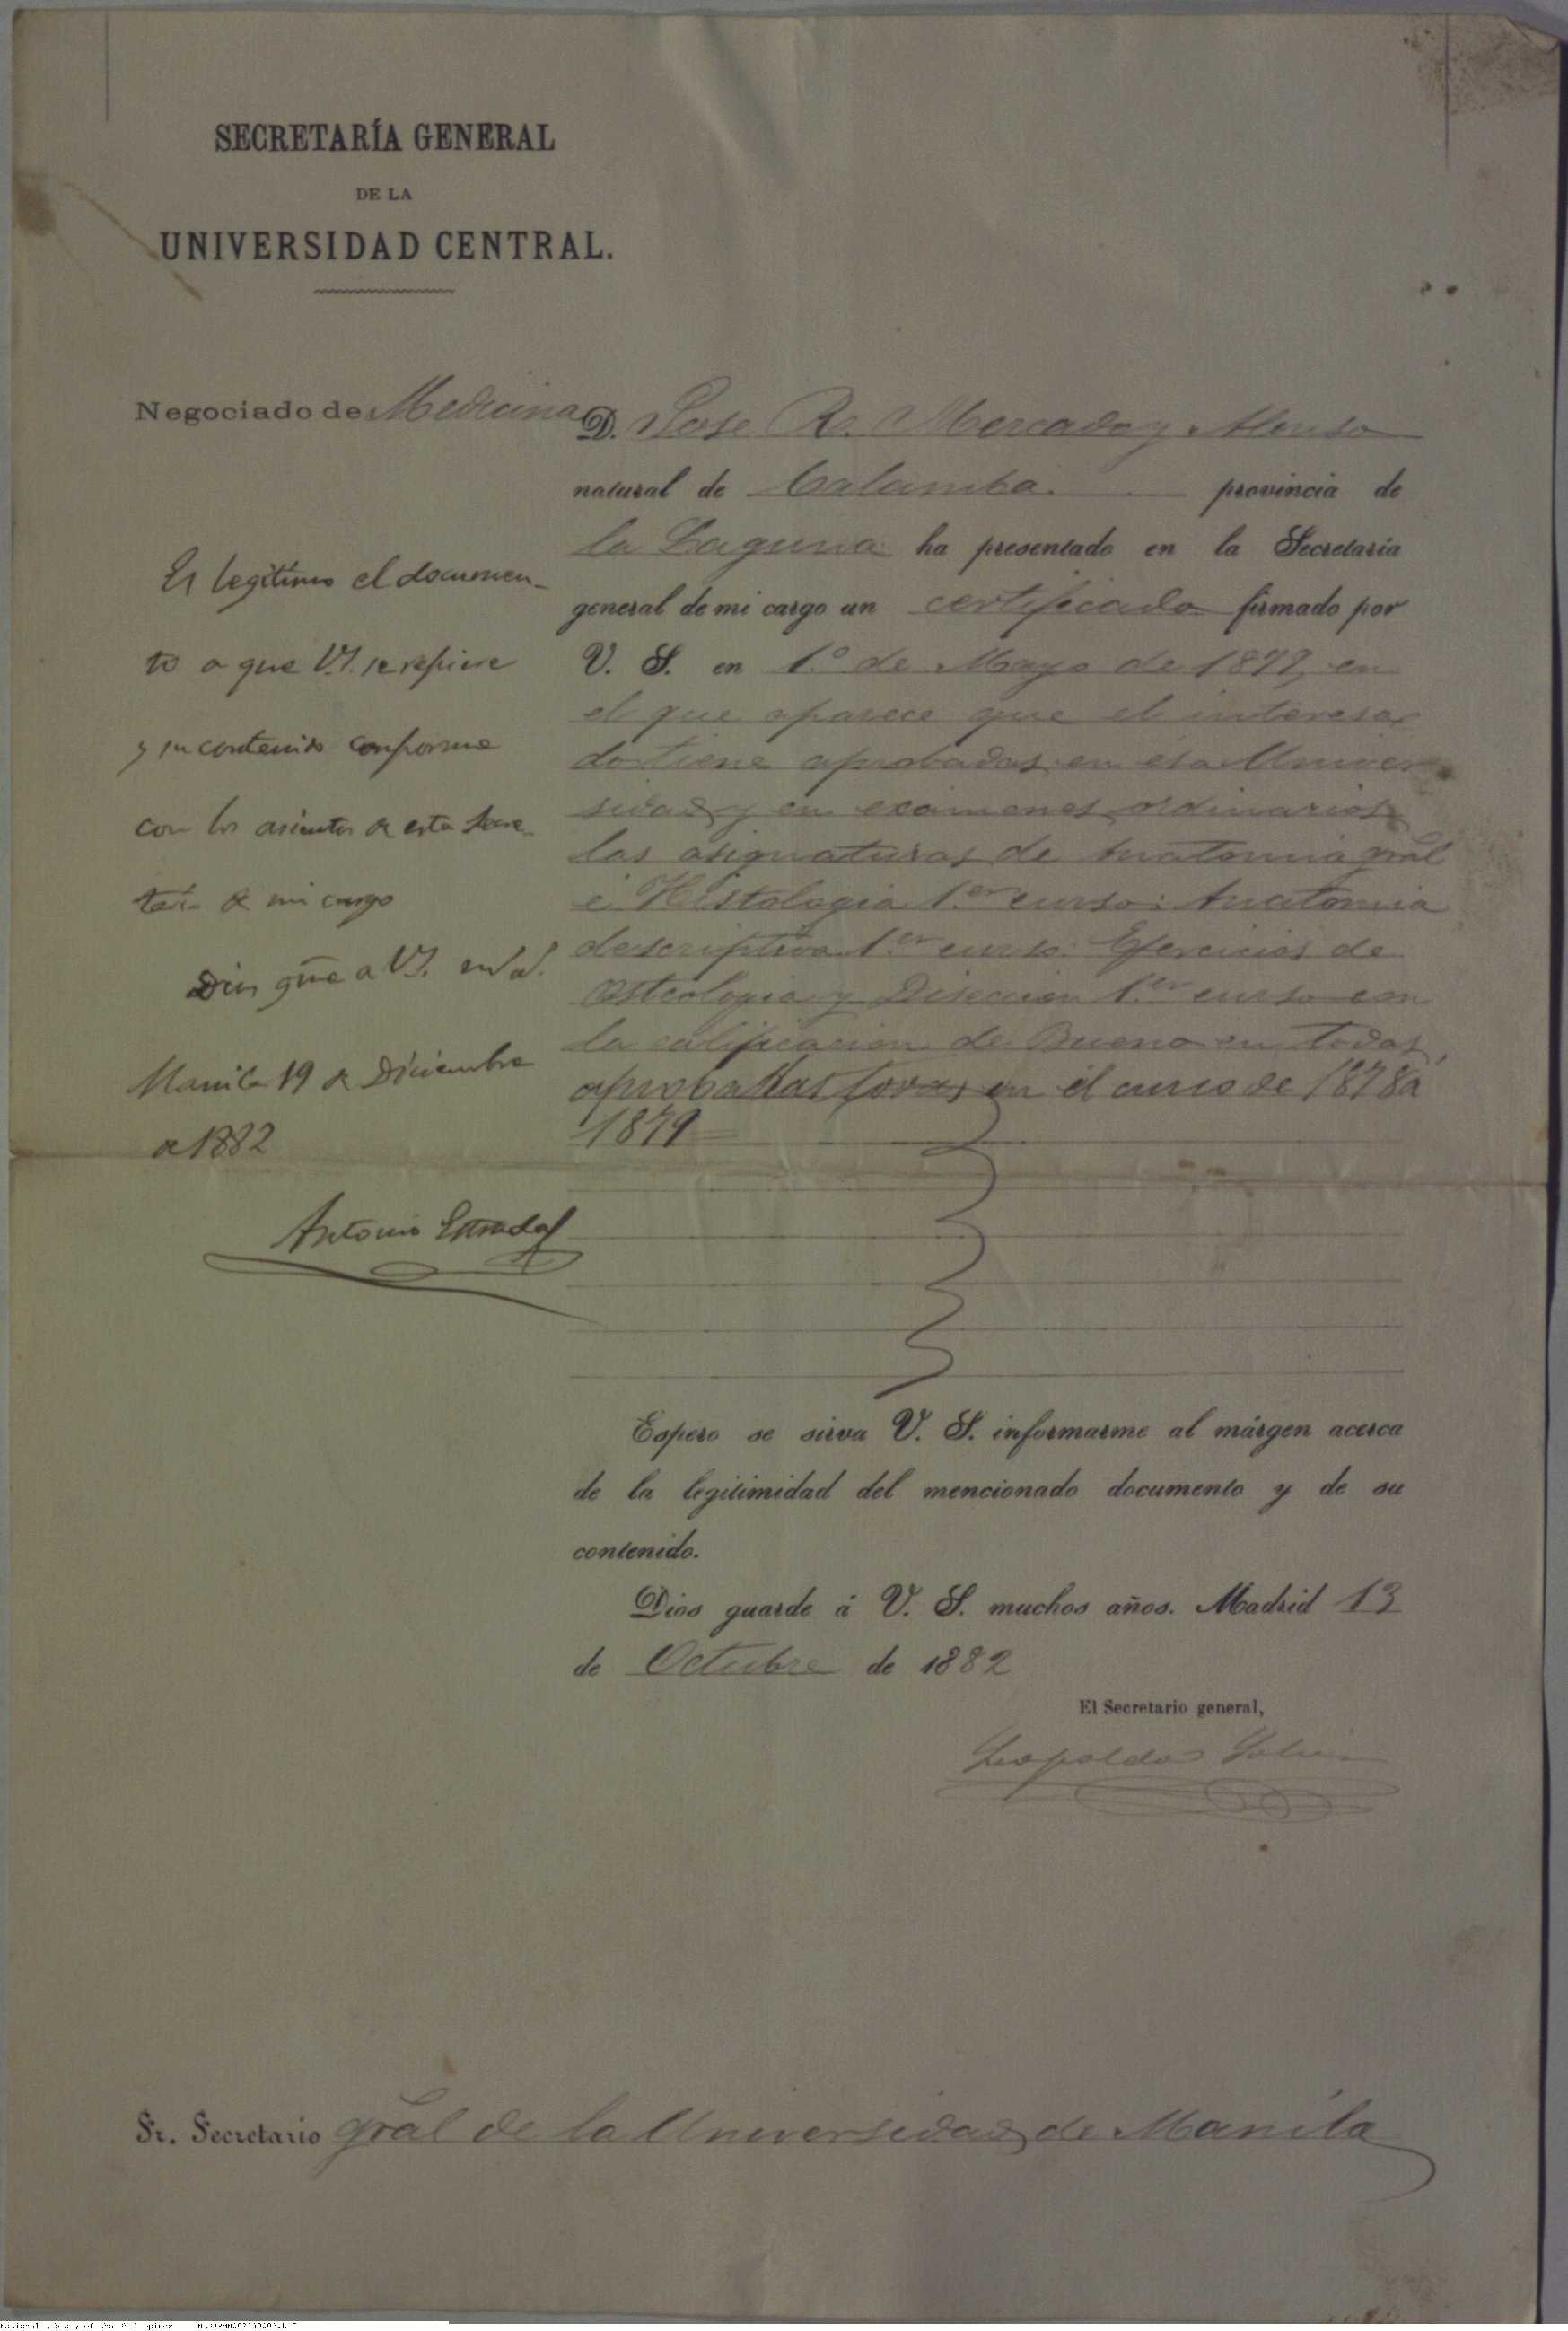 SECRETARÍA GENERAL
DE LA
UNIVERSIDAD CENTRAL.
Negociado de Medicina
D. Jose R. Mercado y Alonso
natural de Calamba. provincia de
la Laguna ha presentado en la Secretaría
general de mi cargo un certificado firmado por
V. S. en 1.º de Mayo de 1877, en
el que aparece que el interesa
do tiene aprobadas en esa Univer
sidad y en examenes ordinarios
las asignaturas de Anatomia gral
é Histologia 1.er curso: Anatomia
descriptiva 1.er curso: Ejercicios de
Osteologia y Diseccion 1.er curso con
la calificacion de Bueno en todas,
aprobadas todas en el curso de 1878 a
1879
Espero se sirva V. S. informarme al márgen acerca
de la legitimidad del mencionado documento y de su
contenido.
Dios guarde á V. S. muchos años. Madrid 13
de Octubre de 1882
El Secretario general,
Leopoldo Solier
Es legitimo el documen-
to a que V.S. se refiere
y su contenido conforme
con los asientos de esta Secre-
taría de mi cargo
Dios gūe a V.S. m.s a.s
Manila 19 de Diciembre
de 1882
Antonio Estrada
Sr. Secretario gral de la Universidad de Manila
National Library of the Philippines